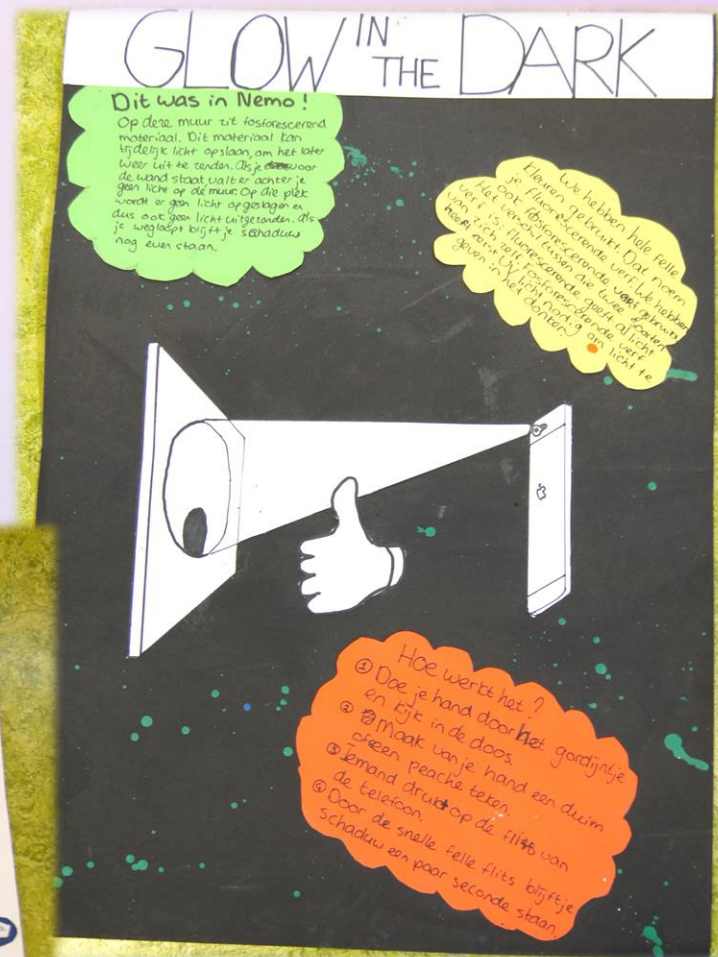 GLOW IN THE DARK
Dit was in Nemo!
Op deze muur zit fosforescerend
materiaal. Dit materiaal kan
tijdelijk licht opslaan, om het later
weer uit te zenden. Als je voor
de wand staat valt er achter je
geen licht op de muur. Op die plek
wordt er geen licht opgeslagen en
dus ook geen licht uitgezonden. Als
je wegloopt blijft je schaduw
nog even staan.
We hebben hele felle
kleuren gebruikt. Dat noem
je fluorescerende verf. We hebben
ook fosforescerende verf gebruikt
Het verschil tussen die twee soorten
verf is: fluorescerende geeft al licht
van zich zelf. Fosforescerende verf
heeft eerst
geven in het licht nodig om licht te
donker
Hoe werkt het?
① Doe je hand door het gordijntje
en kijk in de doos.
② maak van je hand een duim
of een peache teken.
③ Iemand drukt op de flits van
de telefoon.
④ Door de snelle felle flits blijft je
schaduw een paar seconde staan.